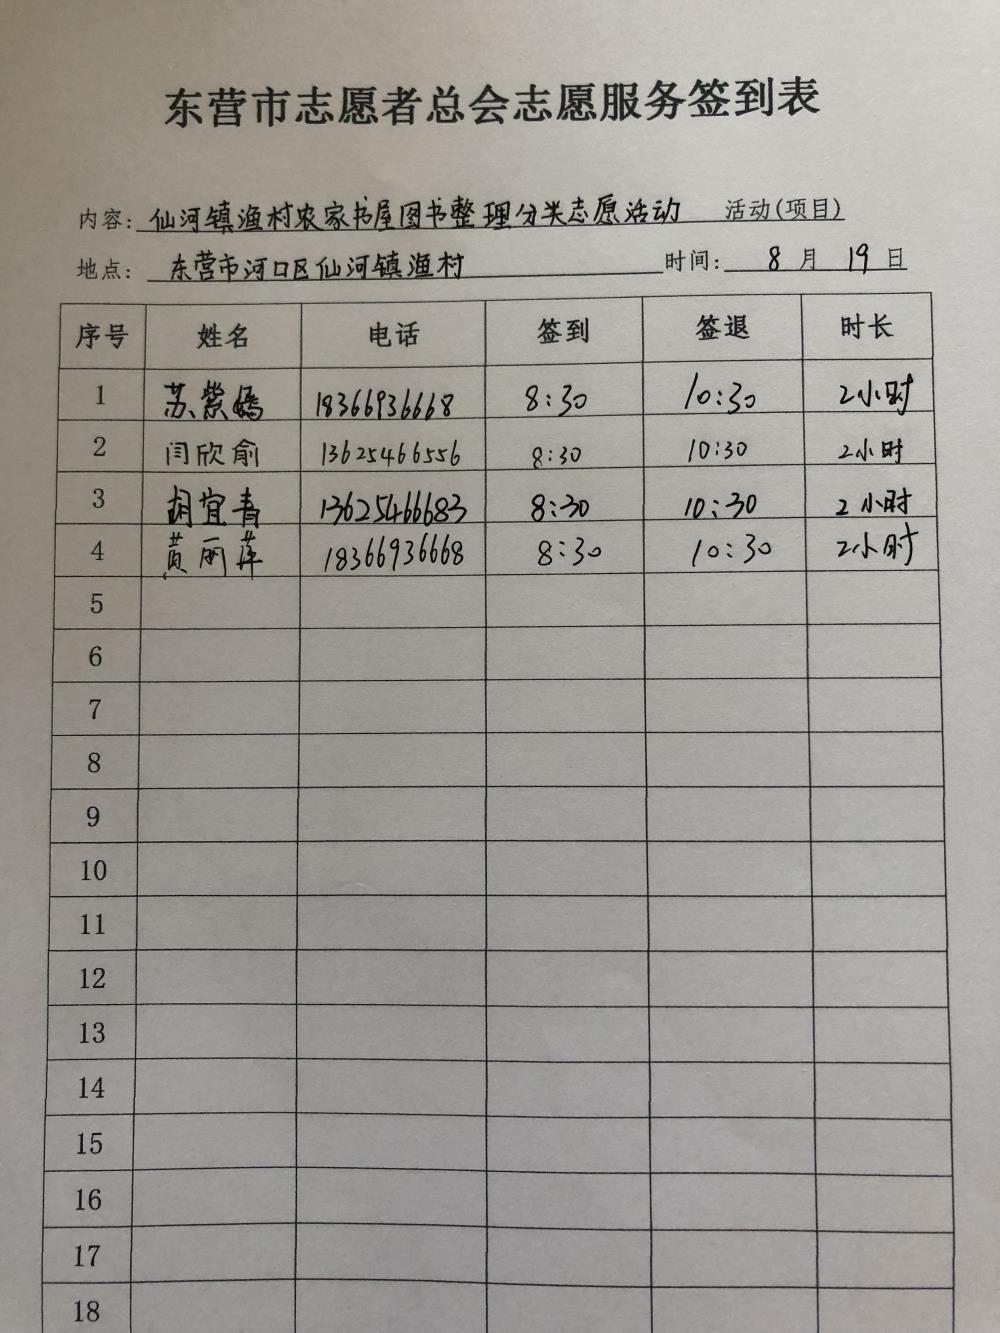 东营市志愿者总会志愿服务签到表
内容: 仙河镇渔村农家书屋图书整理分类志愿活动 活动(项目)
地点: 东营市河口区仙河镇渔村 时间: 8 月 19 日
序号 姓名 电话 签到 签退 时长
1 苏紫嫣 18366936668 8:30 10:30 2小时
2 闫欣俞 13625466556 8:30 10:30 2小时
3 胡宜青 13625466683 8:30 10:30 2小时
4 黄丽萍 18366936668 8:30 10:30 2小时
5
6
7
8
9
10
11
12
13
14
15
16
17
18